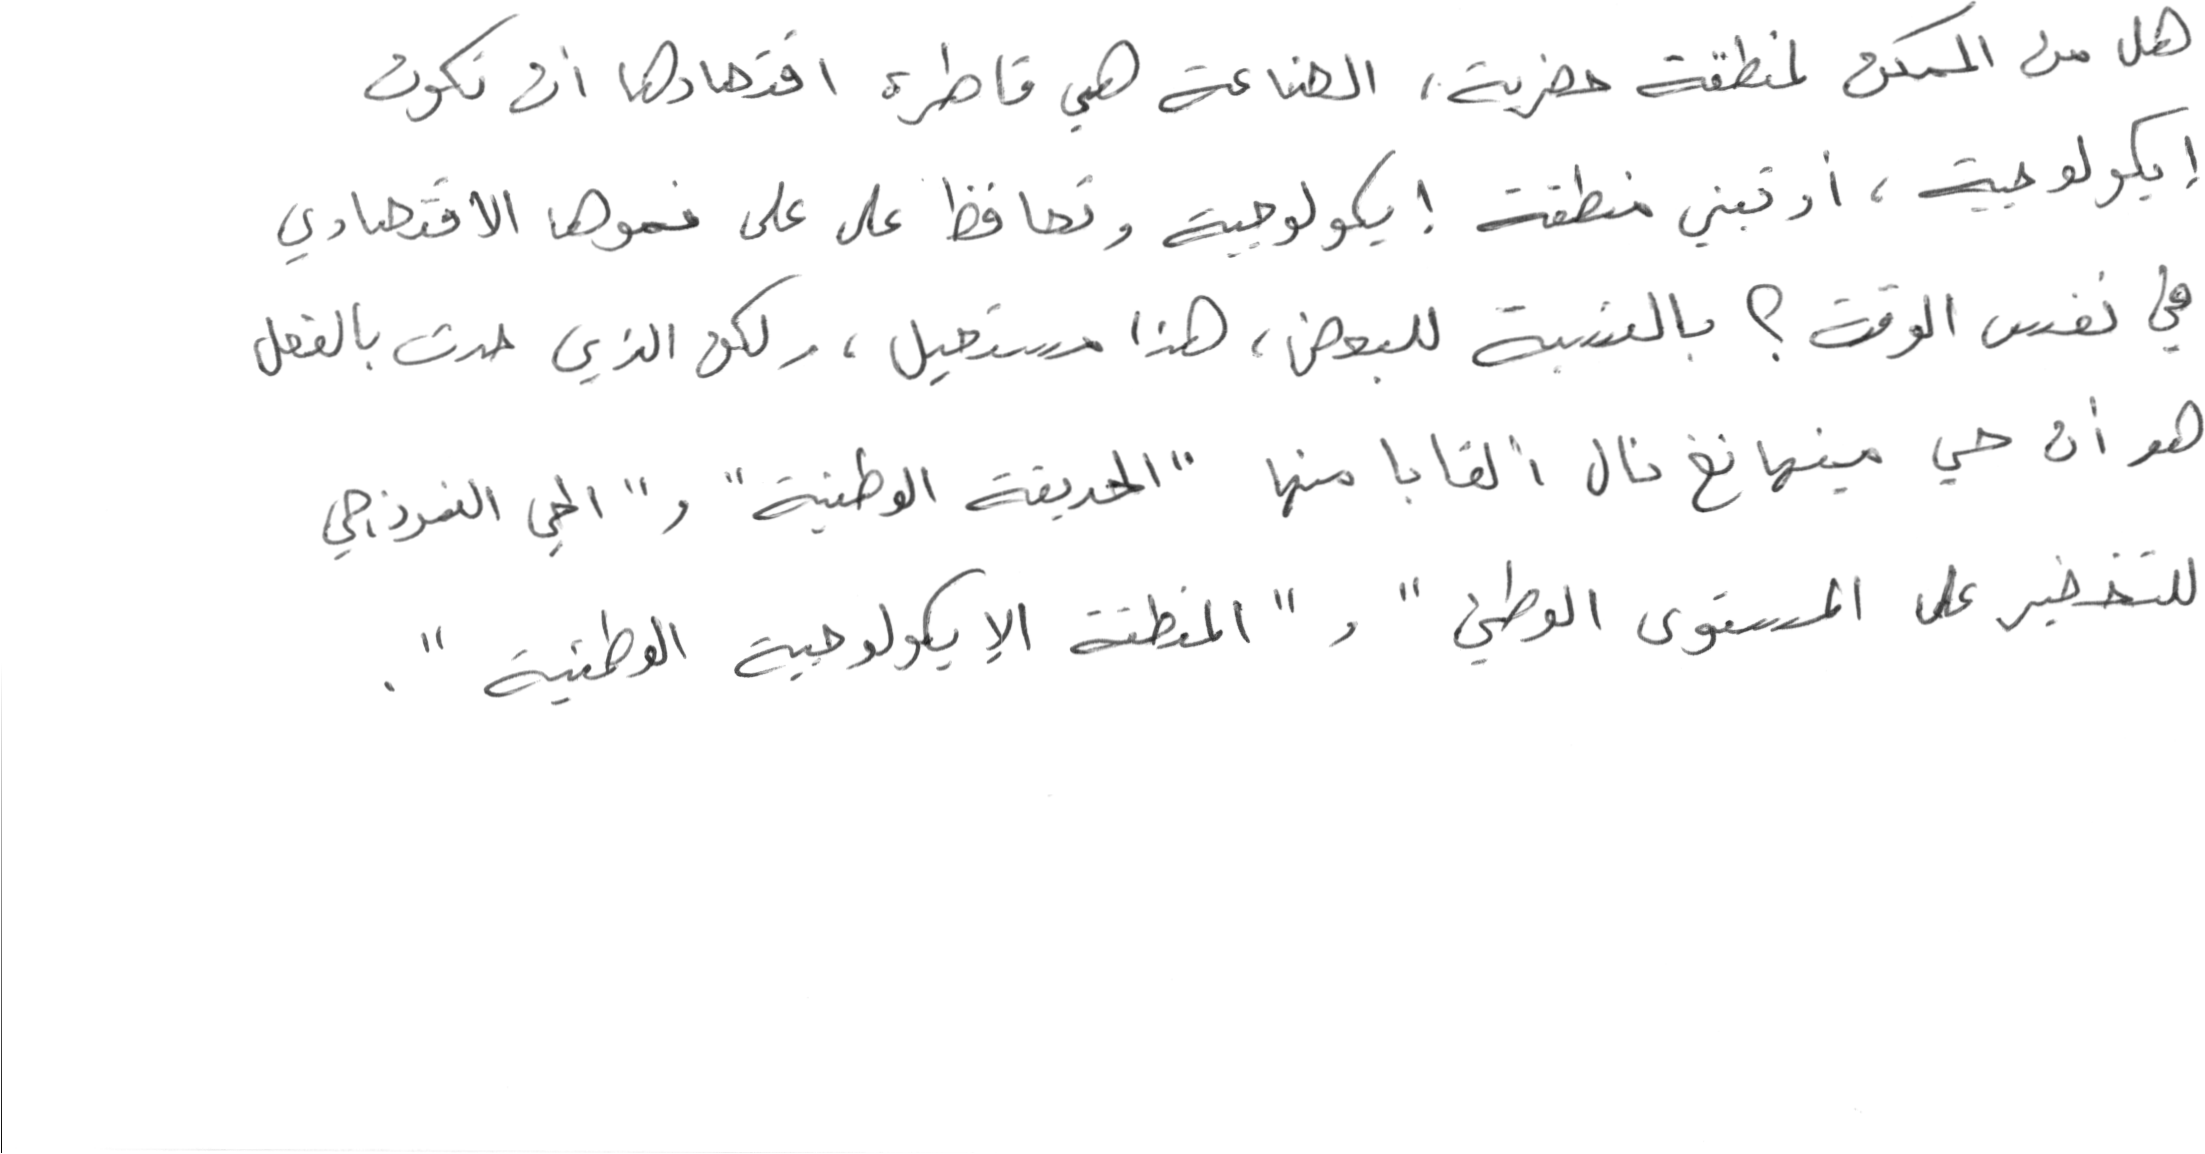 هل من الممكن لمنطقة حضرية، الصناعة هي قاطرة اقتصادها أن تكون
إيكولوجية، أو تبني منطقة إيكولوجية وتحافظ على على نموها الاقتصادي
في نفس الوقت؟ بالنسبة للبعض، هذا مستحيل، ولكن الذي حدث بالفعل
هو أن حي مينهانغ نال ألقابا منها "الحديقة الوطنية" و"الحي النموذجي
للتخضير على المستوى الوطني" و"المنطقة الإيكولوجية الوطنية".